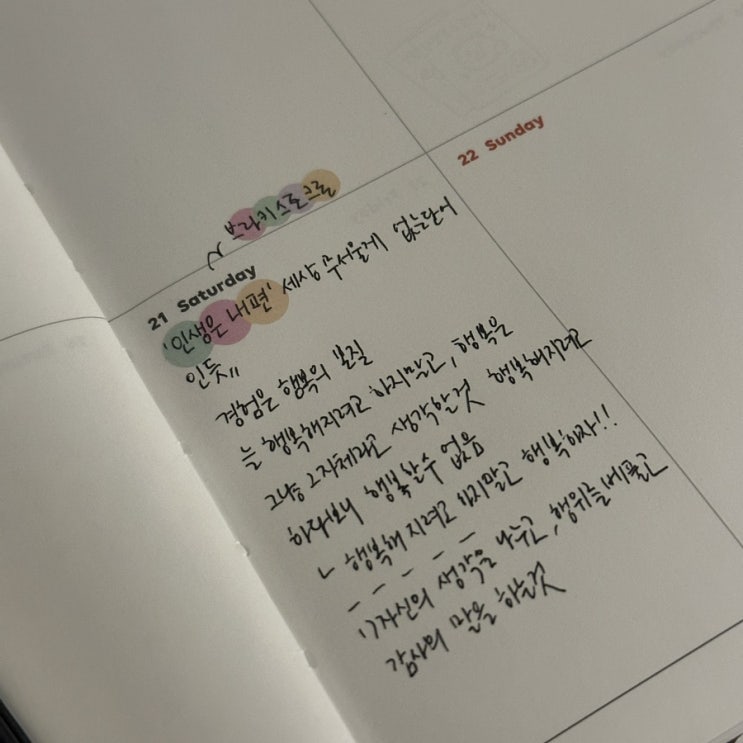 22 Sunday
브라키스로크로
21 Saturday
'인생은 내편' 세상 무서울게 없는단어
인듯"
경험은 행복의 본질
늘 행복해지려고 하지말고, 행복은
그냥 그자체라고 생각할것 행복해지려고
하다보니 행복할수 없음
행복해지려고 하지말고 행복하자!!
1) 자신의 생각을 나누고, 행위를 베풀고
감사의 말을 하는것